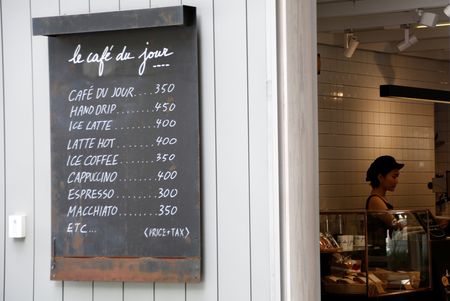 le café du jour
CAFÉ DU JOUR......350
HAND DRIP.......450
ICE LATTE.......400
LATTE HOT.......400
ICE COFFEE......350
CAPPUCCINO......400
ESPRESSO........300
MACCHIATO......350
ETC... <PRICE+TAX>